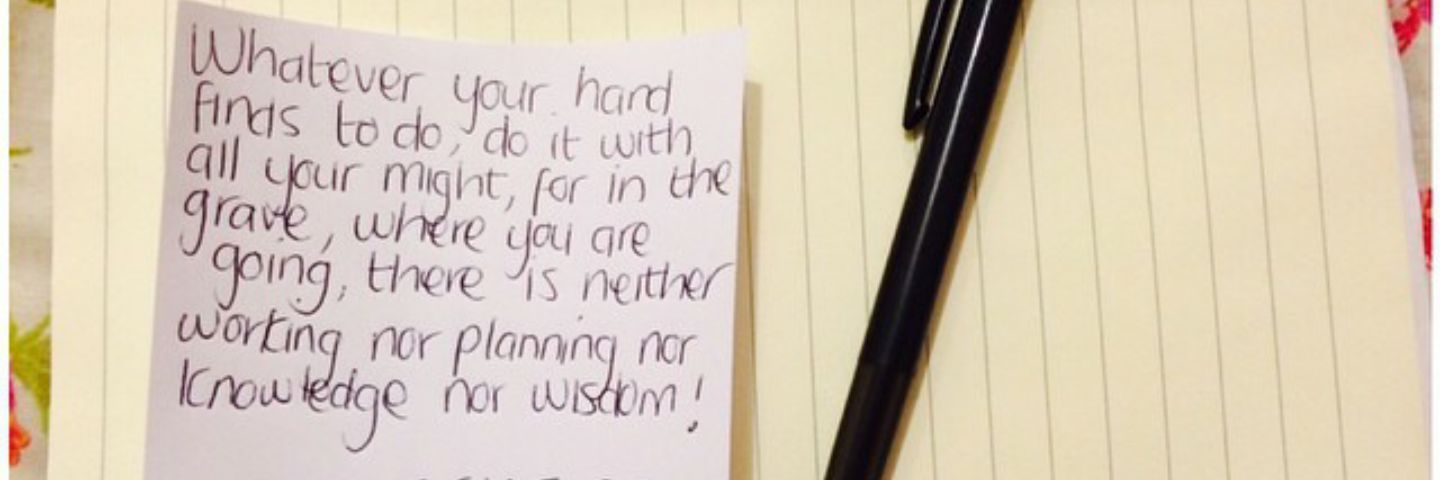 Whatever your hand
finds to do, do it with
all your might, for in the
grave, where you are
going, there is neither
working nor planning nor
knowledge nor wisdom!